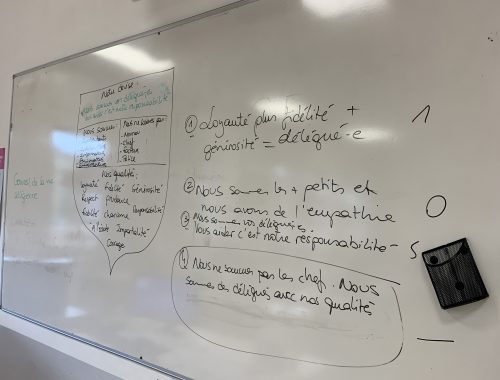 Notre devise :
Nous sommes vos délégués,
vous aider c'est notre responsabilité
Nous sommes : Nous ne sommes pas :
chef
Police
Nos qualités :
loyauté Fidélité Générosité
Respect prudence
charisme Responsabilité
Altruiste Impartialité
Courage
Conseil de la vie
① Loyauté plus fidélité +
générosité = délégué-e
1
② Nous sommes les + petits et
nous avons de l'empathie
0
③ Nous sommes vos délégués.
Vous aider c'est notre responsabilité-
5
④ Nous ne sommes pas les chef. Nous
sommes des délégués avec nos qualités
—